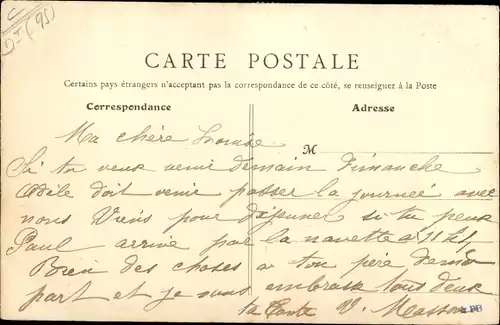 D I (95)
CARTE POSTALE
Certains pays étrangers n'acceptant pas la correspondance de ce côté, se renseigner à la Poste
Correspondance
Adresse
Ma chère Louise
M
Si tu veux venir demain Dimanche
Odile doit venir passer la journeé avec
nous Viens pour déjeuner si tu peux
Paul arrive par la navette a 11 h
Bien des choses a ton père de
part et je vous embrasse tous deux
ta tante V. Masson